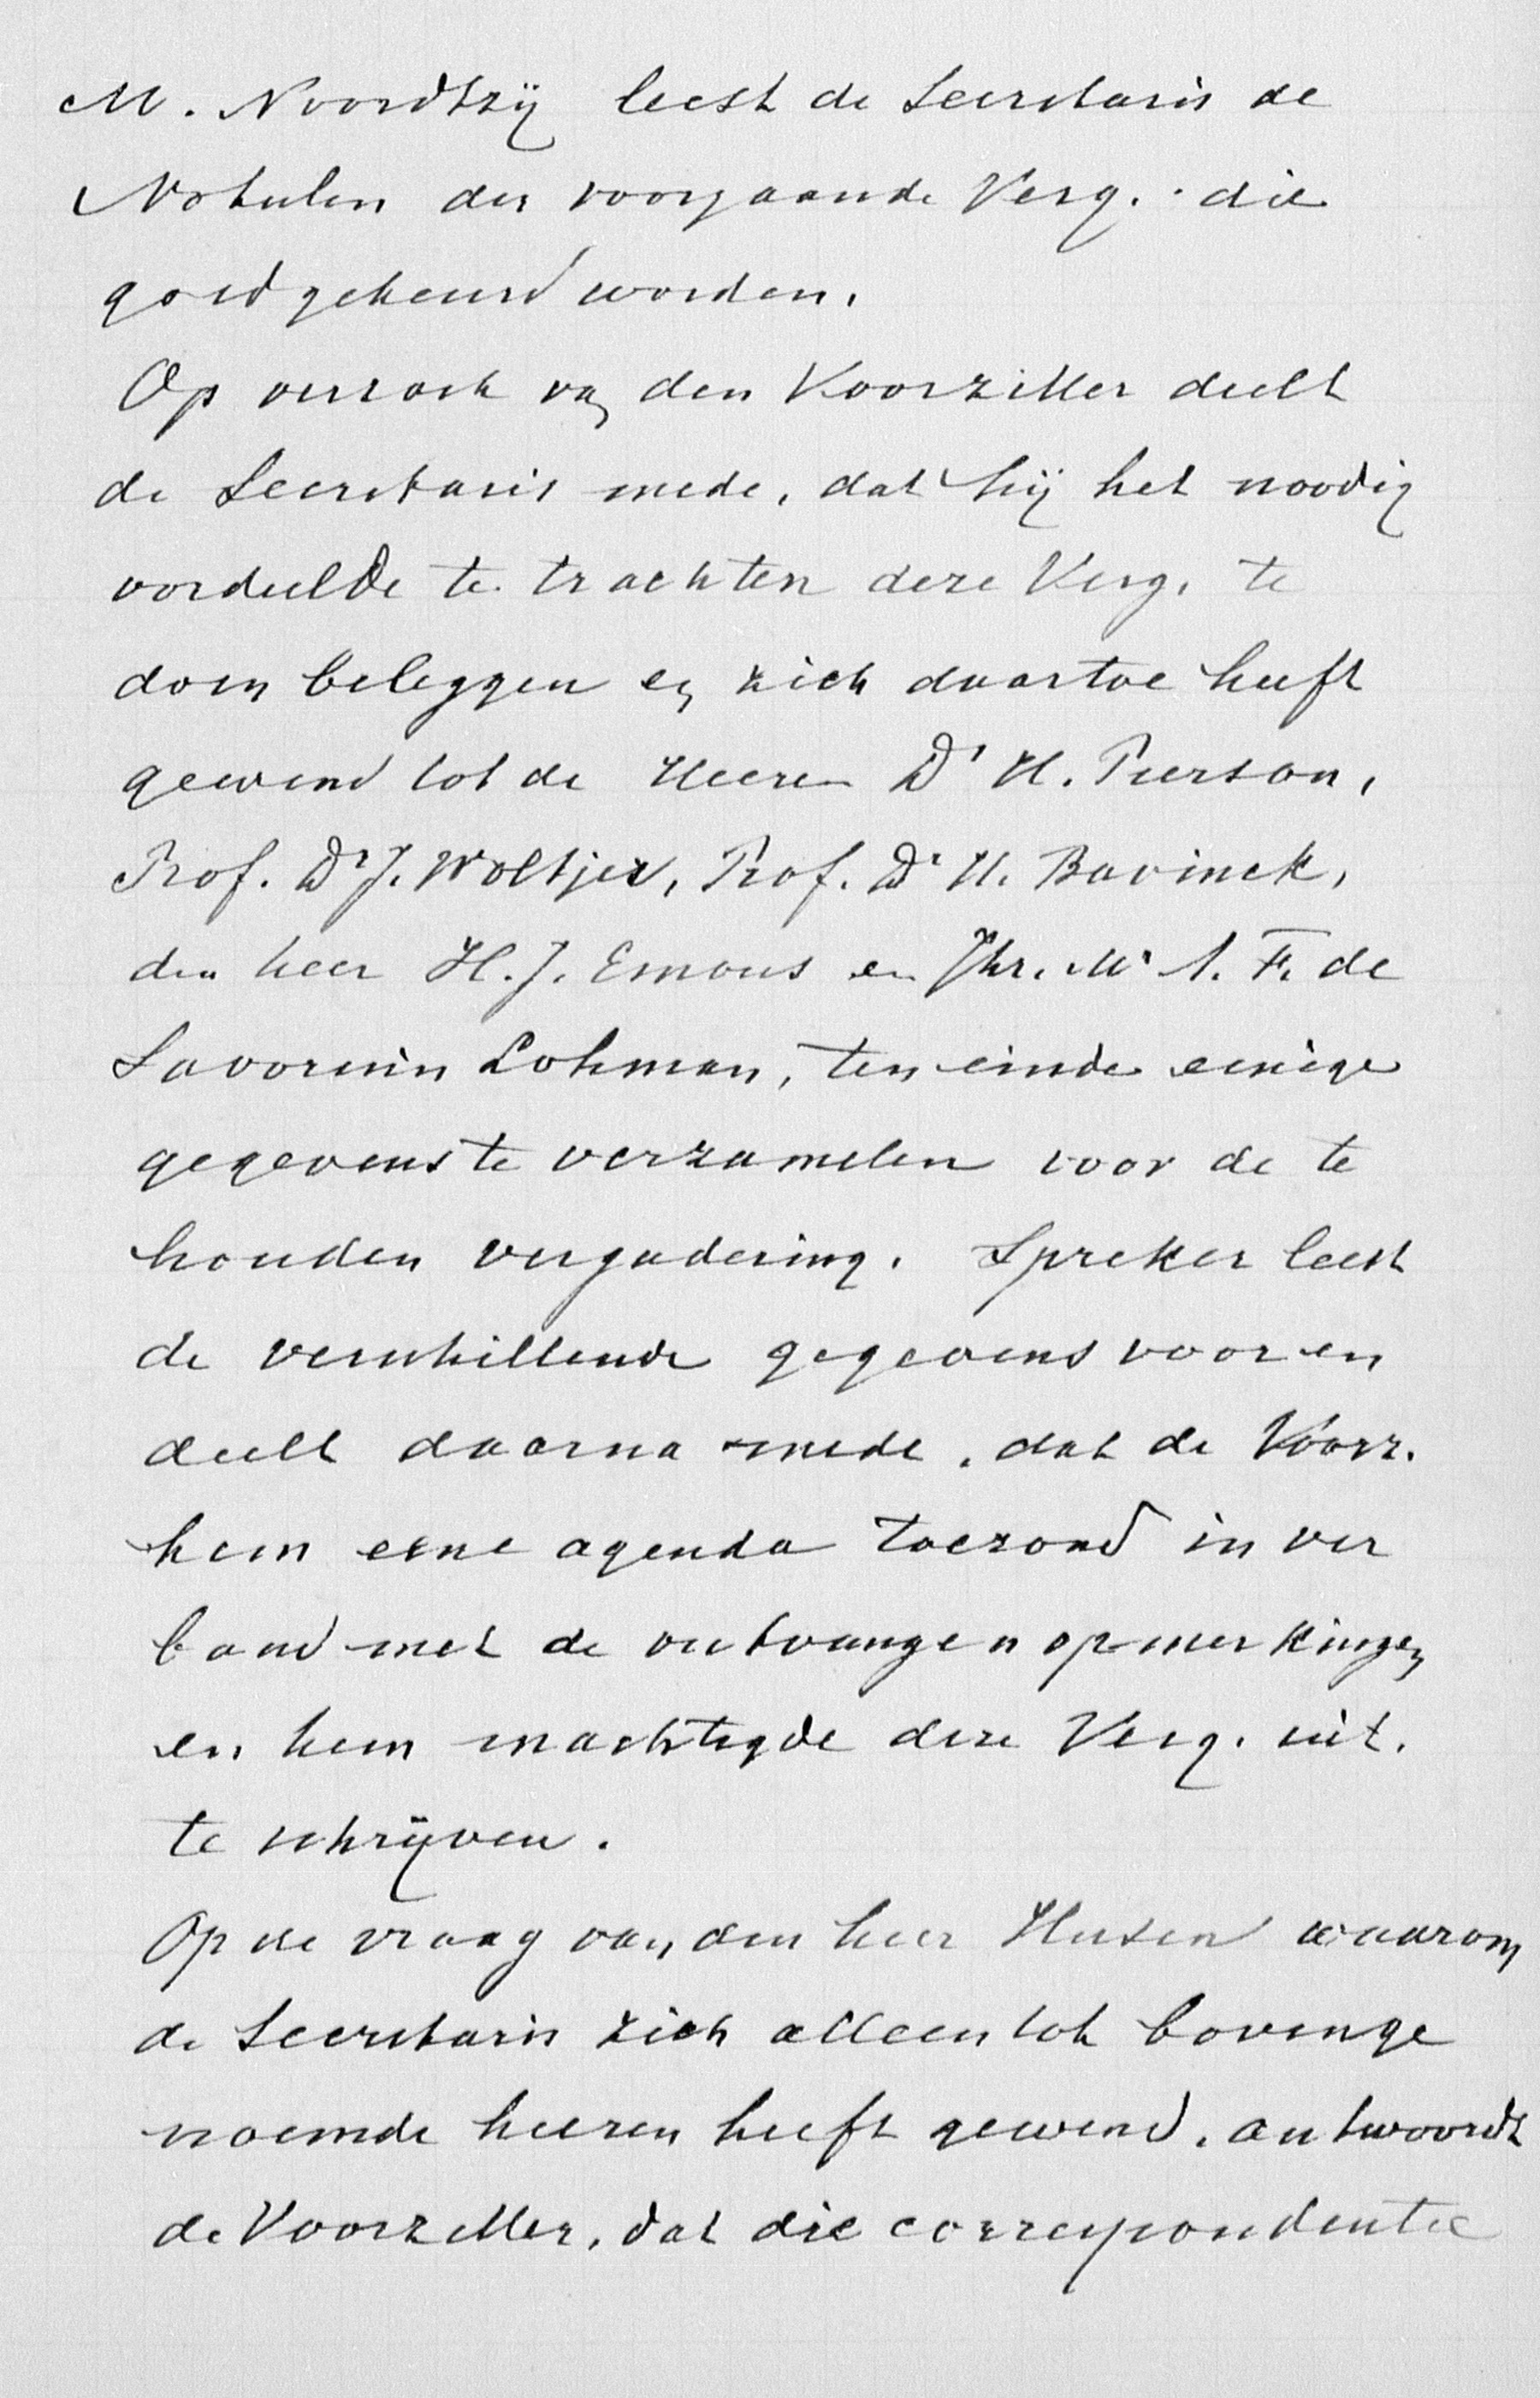 M. Noordtzij leest de Secretaris de
Notulen der voorgaande Verg. die
goedgekeurd worden.
Op verzoek van den Voorzitter deelt
de Secretaris mede, dat hij het noodig
oordeelde te trachten deze Verg. te
doen beleggen en zich daartoe heeft
gewend tot de Heeren Dr H. Pierson,
Prof. Dr J. Woltjer, Prof. Dr H. Bavinck,
den heer H. J. Emous en Jhr. Mr A. F. de
Savornin Lohman, ten einde eenige
gegevens te verzamelen voor de te
houden vergadering. Spreker leest
de verschillende gegevens voor en
deelt daarna mede, dat de Voorz.
hem eene agenda toezond in ver
band met de ontvangen opmerkingen
en hem machtigde deze Verg. uit.
te schrijven.
Op de vraag van den heer Huizen waarom
de Secretaris zich alleen tot bovenge
noemde heeren heeft gewend, antwoordt
de Voorzitter, dat die correspondentie